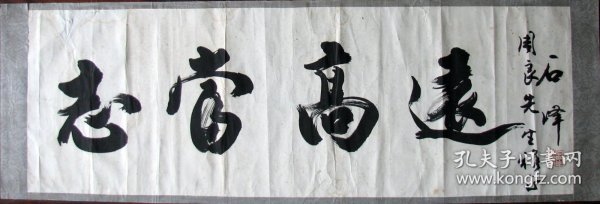 志當高遠
周良先生雅正
石峰
孔夫子旧书网
www.kongfz.com